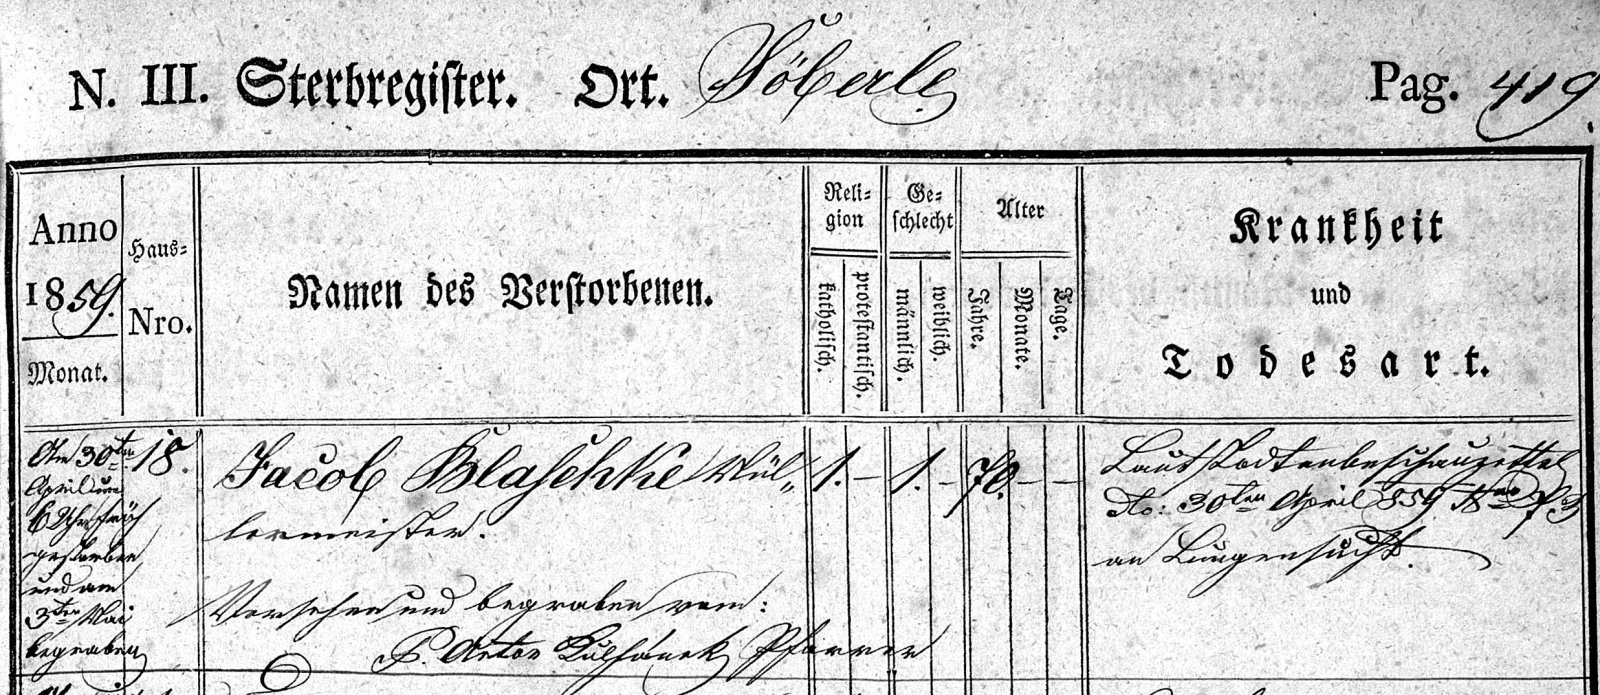 N. III. Sterbregister. Ort. Söberle Pag. 419.
Anno
1859.
Monat.
Haus-
Nro.
Namen des Verstorbenen.
Reli-
gion
katholisch.
protestantisch.
Ge-
schlecht
männlich.
weiblich.
Alter
Jahre.
Monate.
Tage.
Krankheit
und
Todesart.
Am 30ten
April um
6 Uhr früh
gestorben
und am
3ten Mai
begraben
18.
Jacob Blaschke Mül-
lermeister.
Versehen und begraben vom:
P. Anton Pfarrer
1. - 1. - 70. - -
Laut Todtenbeschauzettel
do: 30ten April 859
an Lungensucht.